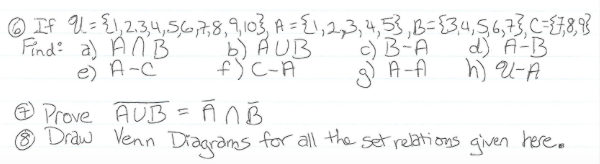 ⑥ If 𝒰 = {1,2,3,4,5,6,7,8,9,10}, A = {1,2,3,4,5}, B = {3,4,5,6,7}, C = {7,8,9}
Find: a) A ∩ B b) A ∪ B c) B-A d) A-B
e) A-C f) C-A g) A-A h) 𝒰-A
⑦ Prove A̅∪̅B̅ = A̅ ∩ B̅
⑧ Draw Venn Diagrams for all the set relations given here.